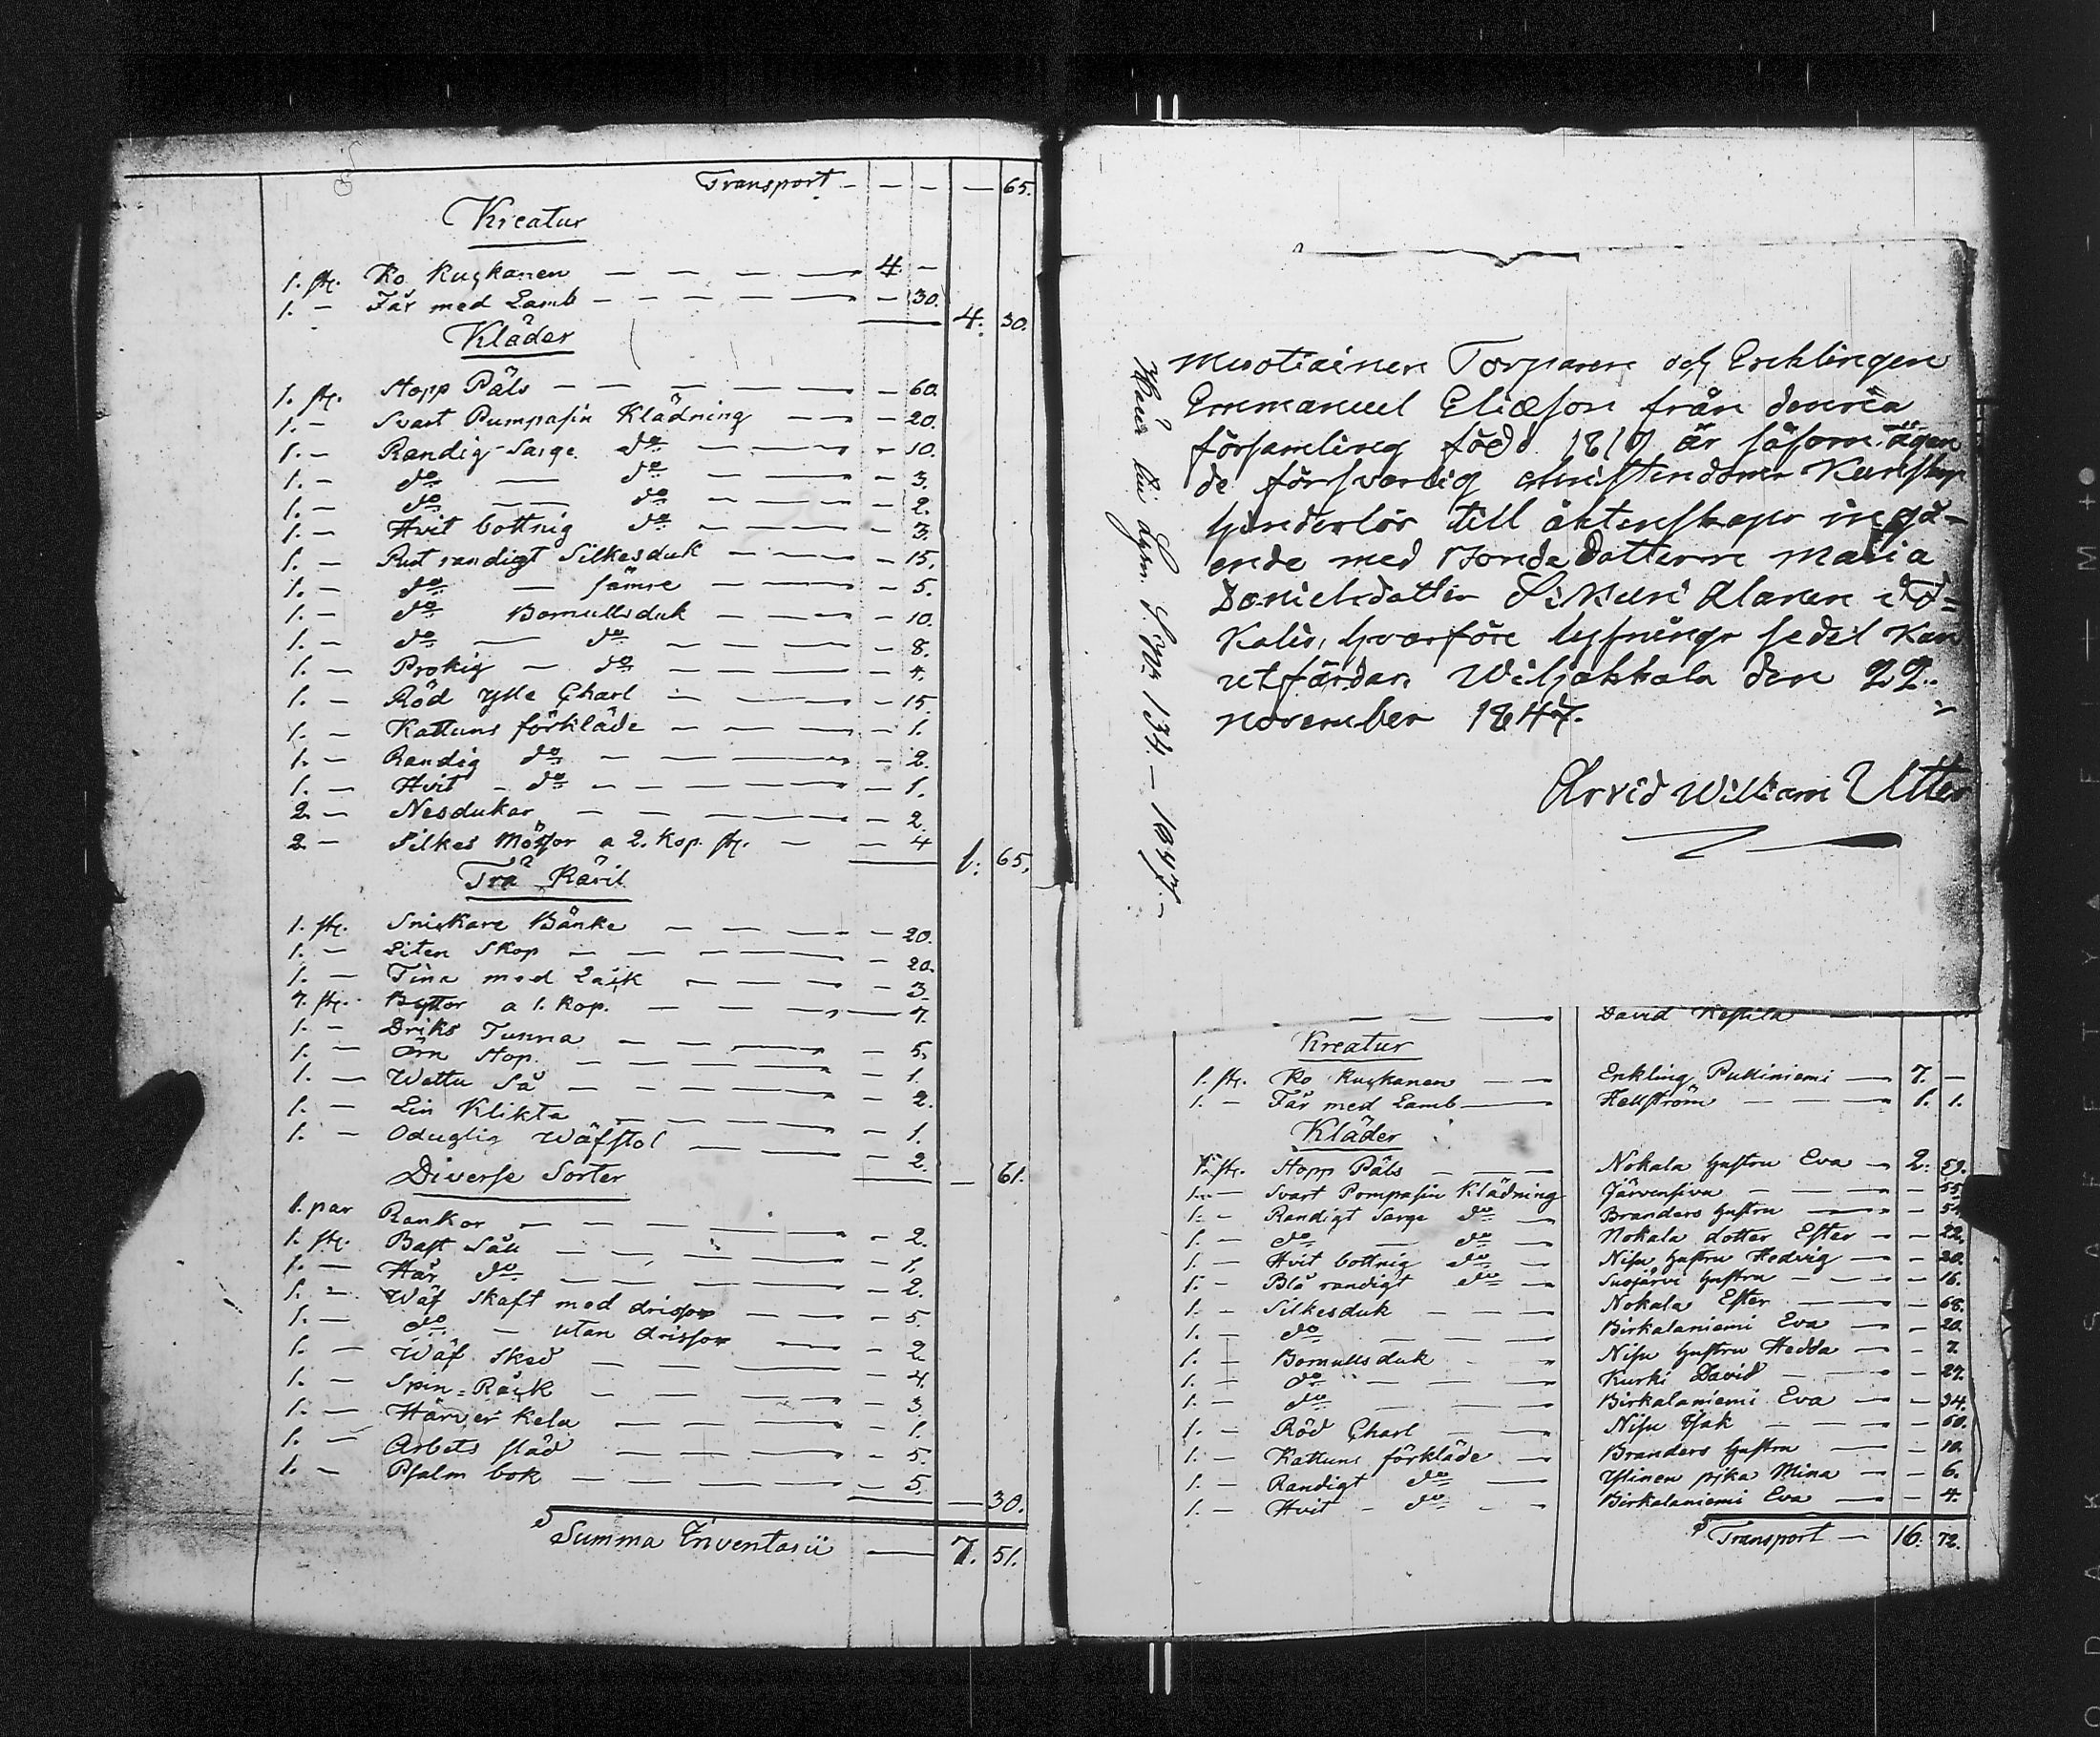 Transport - - - - 65.
Kreatur
1. st. Ko Kuskanen - - - - 4 -
1. - Får med Lamb - - - - - - 30.
4. 30.
Kläder
1. st. Stopp Päls - - - - - 60.
1. - Svart Pumpasin Klädning - - - 20.
1. - Randig Sarge do - - - 10.
1. - do - do - - - 3.
1. - do - do - - - 2.
1. - Hvit bottnig do - - - 3.
1. - Rut randigt Silkesduk - - - 15.
1. - do - sämre - - - 5.
1. - do Bomullsduk - - - 10.
1. - do - do - - - 8.
1. - Prokig - do - - - 4.
1. - Röd ylle Charl - - - 15.
1. - Kattuns förkläde - - - 1.
1. - Randig do - - - 2.
1. - Hvit - do - - - 1.
2. - Nesdukar - - - 2.
2. - Silkes Mössor a 2. Kop. st. - - 4
1. 65.
Trä Käril
1. st. Snickare Bänke - - - 20.
1. - Liten Skop - - - 20.
1. - Tina med Låck - - - 3.
7. st. Byttor a 1. Kop. - - - 7.
1. - Driks Tunna - - - 5.
1. - Örn Stop - - - 1.
1. - Wattu Så - - - 2.
1. - Lin Klikta - - - 1.
1. - Oduglig Wäfstol - - - 2.
- 61.
Diverse Sorter
1. par Rankor - - - 2.
1. st. Bast Såll - - - 1.
1. - Hår do - - - 2.
1. - Wäf Skaft med drissor - - - 5.
1. - do - utan drissor - - 2.
1. - Wäf Sked - - - 4.
1. - Spin-Råck - - - 3.
1. - Kela - - - 1.
1. - Arbets släd - - - 5.
1. - Psalm bok - - - 5.
- 30.
Summa Inventarii - 7. 51.
134 - 1847.
Musotiainen Torparen och Encklingen
Emmanuel Eliæson från denna
församling född 1817 är såsom ägan
de försvarlig christendoms Kunskap
hinderlös till äktenskaps ingå-
ende med Bonde Dottern Maria
Danielsdotter
Kalis, hvarföre lysnings sedel Kan
utfärdas Wiljakkala den 22.
november 1847.
Arvid William Utter
- - - David Kestilä -
Kreatur
1. st. Ko Kuskanen - - Enkling Pukiniemi - 7. -
1. - Får med Lamb - Hallström - - 1. 1.
Kläder
1. st. Stopp Päls - - - Nokala hustru Eva - 2. 51.
1. - Svart Pompasin Klädning Järvensivu - - - 55
1. - Randigt Sarge do - Branders hustru - - 51
1. - do - do - Nokala dotter Ester - - 22.
1. - Hvit bottnig do - Nisu hustru Hedvig - - 20.
1. - Blå randigt do - Susjärvi hustru - - - 16.
1. - Silkesduk - - - Nokala Ester - - 68.
1. - do - - - Birkalaniemi Eva - - 20.
1. - Bomullsduk - - Nisu hustru Hedda - - 7.
1. - do - - - Kurki David - - 27.
1. - do - - - Birkalaniemi Eva - - 34.
1. - Röd Charl - - Nisu Isak - - - 60.
1. - Kattuns förkläde - Branders hustru - - 10.
1. - Randigt do - Ylinen pika Mina - - 6.
1. - Hvit - do - - Birkalaniemi Eva - - 4.
Transport - 16. 72.